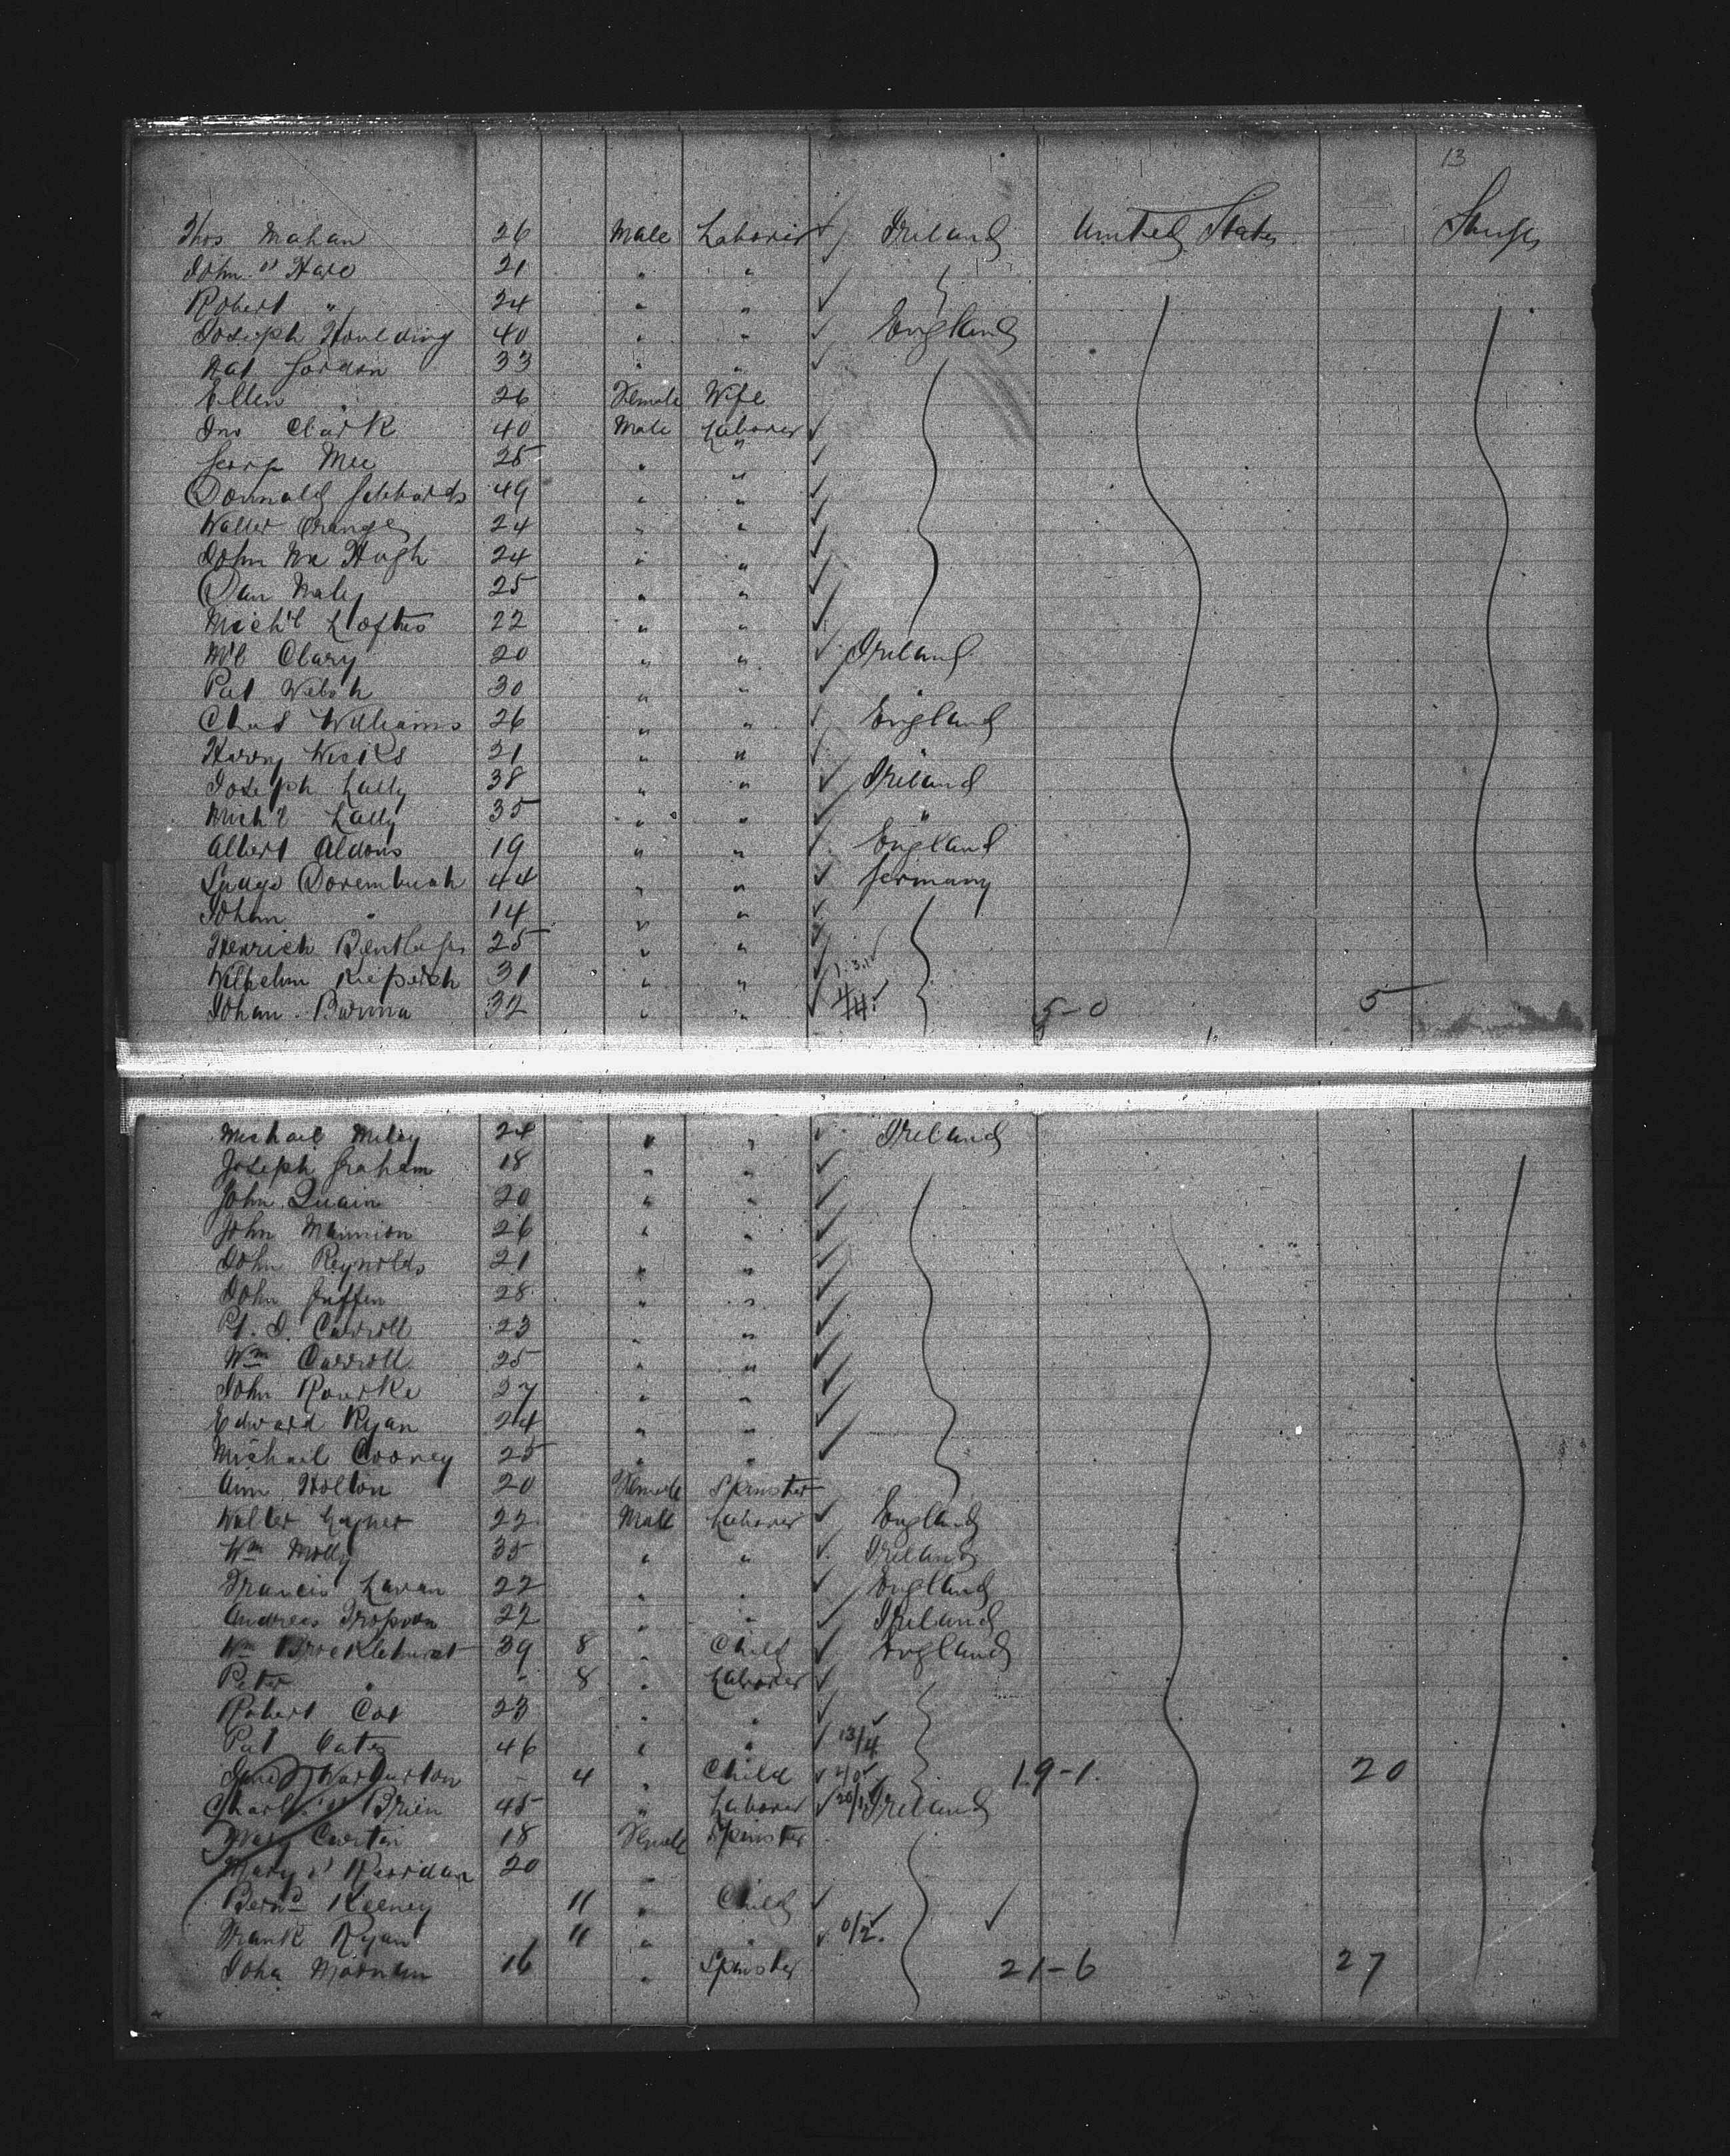 13
Thos Mahan 26 Male Laborer Ireland United States
John O'Hare 21 " "
Robert " 24 " "
Joseph Houlding 40 " " England
Nat Gordon 33 " "
Ellen " 26 Female Wife
Jno Clark 40 Male Laborer
George Mee 25 " "
Donnald 49 " "
Walter Orange 24 " "
John Mc Hugh 24 " "
Dan Maley 25 " "
Mich'l Loftus 22 " "
M'l Clary 20 " " Ireland
Pat Welsh 30 " " "
Chas Williams 26 " " England
Harry Weeks 21 " " "
Joseph Lally 38 " " Ireland
Mich'l Lally 35 " " "
Albert Aldous 19 " " England
44 " " Germany
Johan " 14 " "
Heinrich 25 " "
Wilhelm 31 " "
Johan 32 " " 44 5-0 5
Michael Miley 24 " " Ireland
Joseph Graham 18 " "
John Quain 20 " "
John Mannion 26 " "
John Reynolds 21 " "
John 28 " "
Pt. J. Carroll 23 " "
Wm Carroll 25 " "
John Rourke 27 " "
Edward Ryan 24 " "
Michael Cooney 25 " "
Ann Holton 20 Female Spinster
Walter 22 Male Laborer England
Wm Molly 35 " " Ireland
Francis Lavan 22 " " England
Andrew 22 " " Ireland
Wm Brocklehurst 39 8 " Child England
Peter " - 8 " Laborer
Robert Cox 23 " "
Pat Oates 46 " " 13/4
Warburton - 4 " Child 19-1 20
Charl. O'Brien 45 " Laborer Ireland
Mary Curtin 18 Female Spinster
Mary O'Reordan 20 "
Bernd Keeney 11 " Child
Frank Ryan 11 " " 0/2.
16 " Spinster 21-6 27